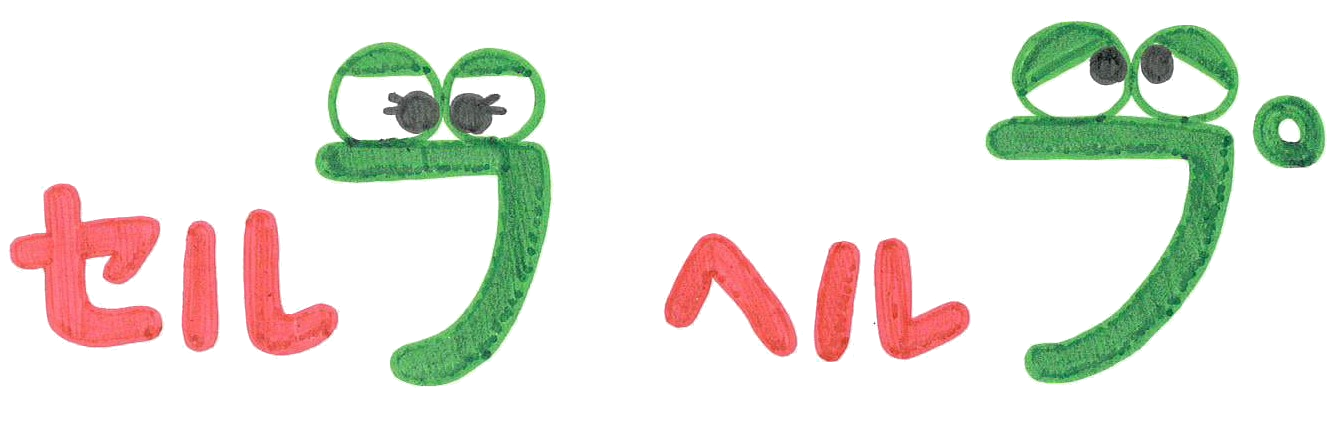 セルフ ヘルプ